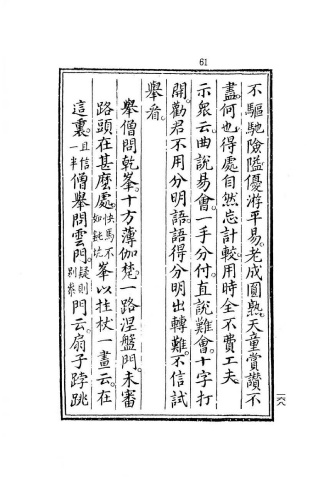 61
不驅馳險隘優游平易。老成圓熟。天童賞讚不
盡。何也。得處自然忘計較。用時全不費工夫。
示衆云。曲說易會。一手分付。直說難會。十字打
開。勸君不用分明語。語得分明出轉難。不信試
舉看。
舉僧問乾峯。十方薄伽梵。一路涅盤門。未審
路頭在甚麼處。快馬不如鈍坑峯以拄杖一畫云。在
這裏。且信一半僧舉問雲門。疑則別參門云。扇子踍跳
一六八